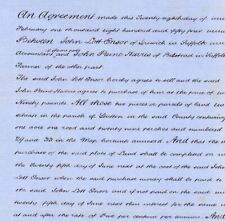 An Agreement made this Twenty eighth day of
February one thousand eight hundred and fifty five
Between John Lott Ensor of Ipswich in Suffolk
Accountant of one part and John Paine Harris of Belstead in Suffolk
Farmer of the other part.
The said John Lott Ensor hereby agrees to sell and the said
John Paine Harris agrees to purchase of him at the price of
Ninety pounds All those two pieces or parcels of land
in the parish of in the said County containing
one acre one rood and twenty nine perches and numbered
and 33 in the Map hereunto annexed And that the
purchase of the said plots of Land shall be completed on
the twenty fifth day of June next at the cost of the said John
Lott Ensor when the purchase money shall be paid to
the said John Lott Ensor and if not paid on the said
twenty fifth day of June next then interest for the same
at and after the rate of Five per centum per annum And